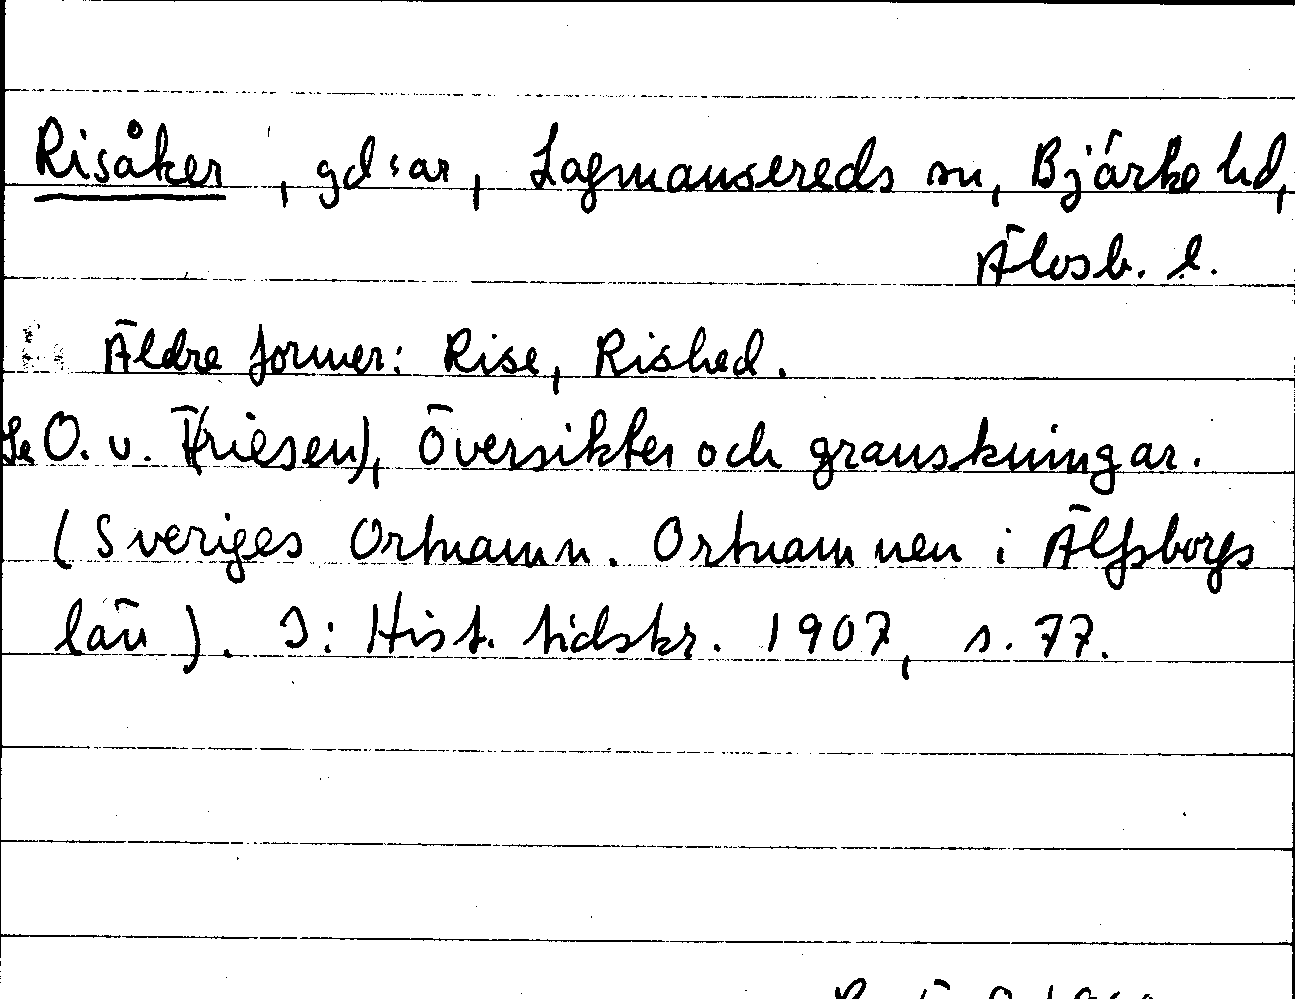 Risåker, gd:ar, Lagmansereds sn, Bjärke hd,
Älvsb. l.
Äldre former: Rise, Rished.
Se O. v. F(riesen), Översikter och granskningar.
(Sveriges Ortnamn. Ortnamnen i Älfsborgs
län). I: Hist. tidskr. 1907, s. 77.